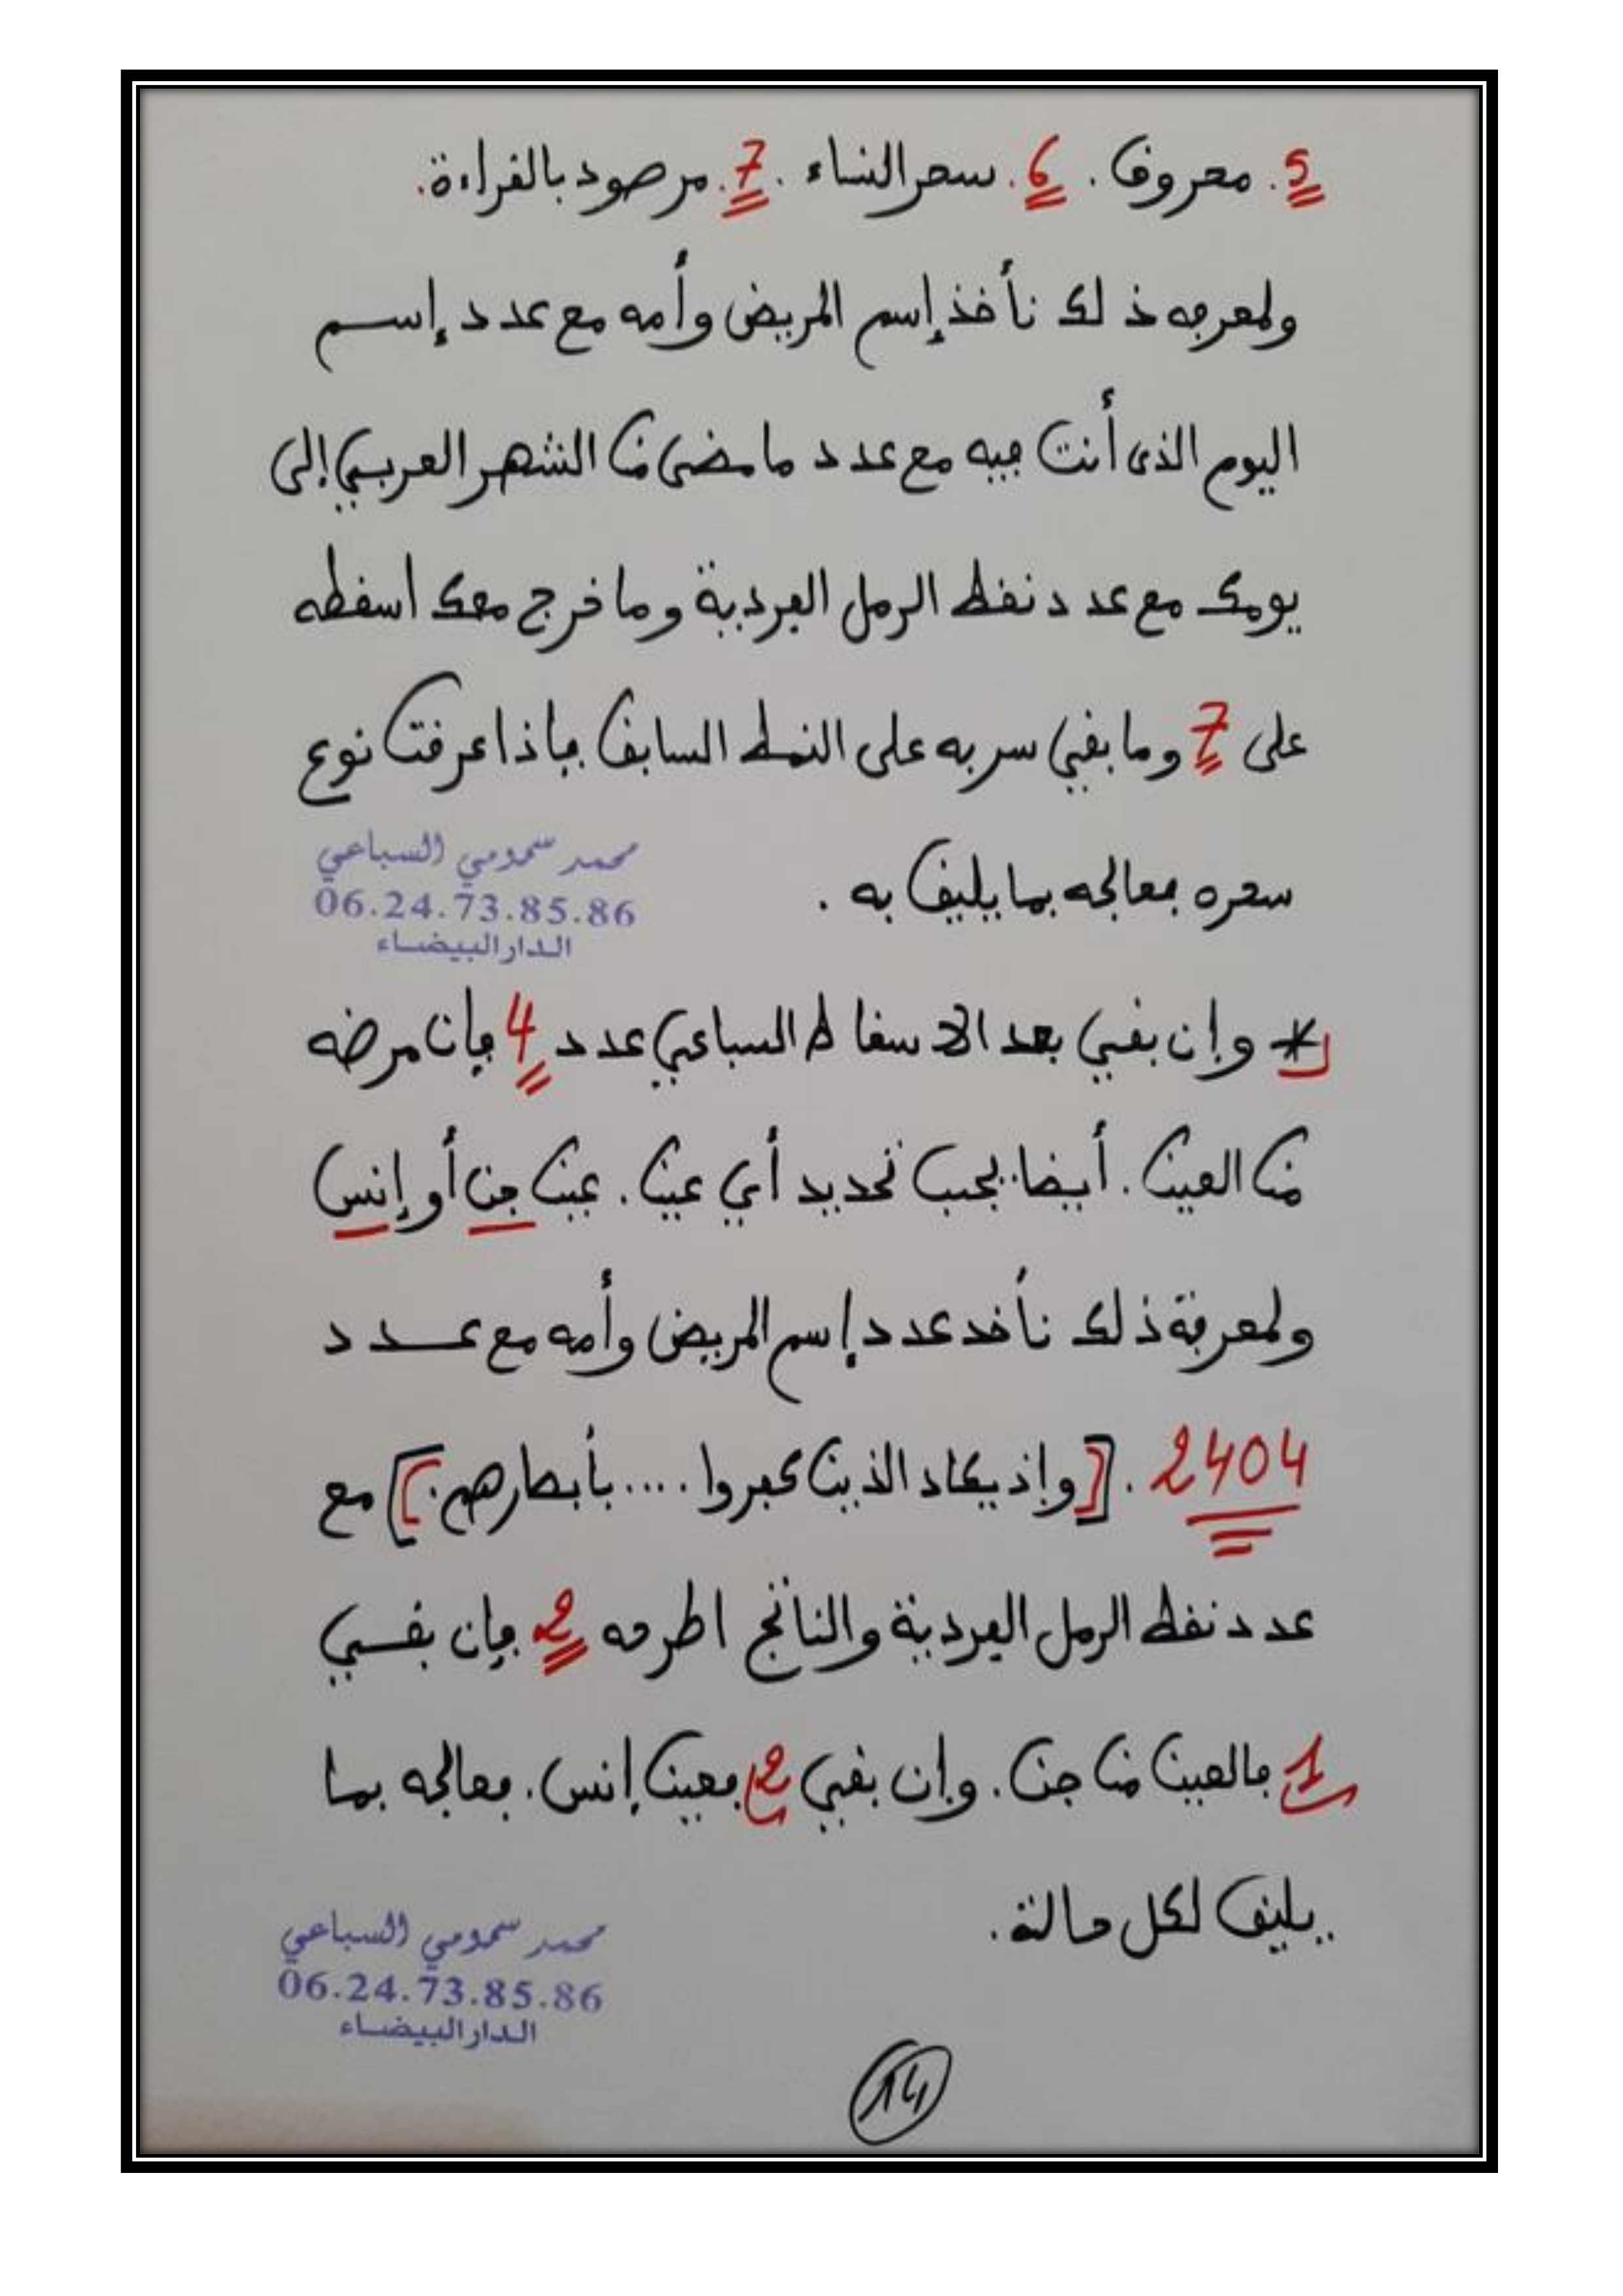 5. محروق. 6. سحر النساء. 7. مرصود بالقراءة.
ولمعرفه ذلك نأخذ إسم المريض وأمه مع عدد إسم
اليوم الذى أنت فيه مع عدد ما مضى من الشهر العربي إلى
يومك مع عدد نقط الرمل الفردية وما خرج معك اسقطه
على 7 وما بقي سر به على النمط السابق فإذا عرفت نوع
سحره فعالجه بما يليق به.
محمد سمومي السباعي
06.24.73.85.86
الدار البيضاء
* وإن بقي بعد الاسقاط السباعي عدد 4 فإن مرضه
من العين. أيضا يجب تحديد أي عين. عين جن أو إنس
ولمعرفة ذلك نأخد عدد إسم المريض وأمه مع عدد
2404. [وإذ يكاد الذين كفروا .... بأبصارهم] مع
عدد نقط الرمل الفردية والناتج اطرحه 2 فإن بقي
1 فالعين من جن. وإن بقي 2 فعين إنس. فعالجه بما
يليق لكل حالة.
محمد سمومي السباعي
06.24.73.85.86
الدار البيضاء
14